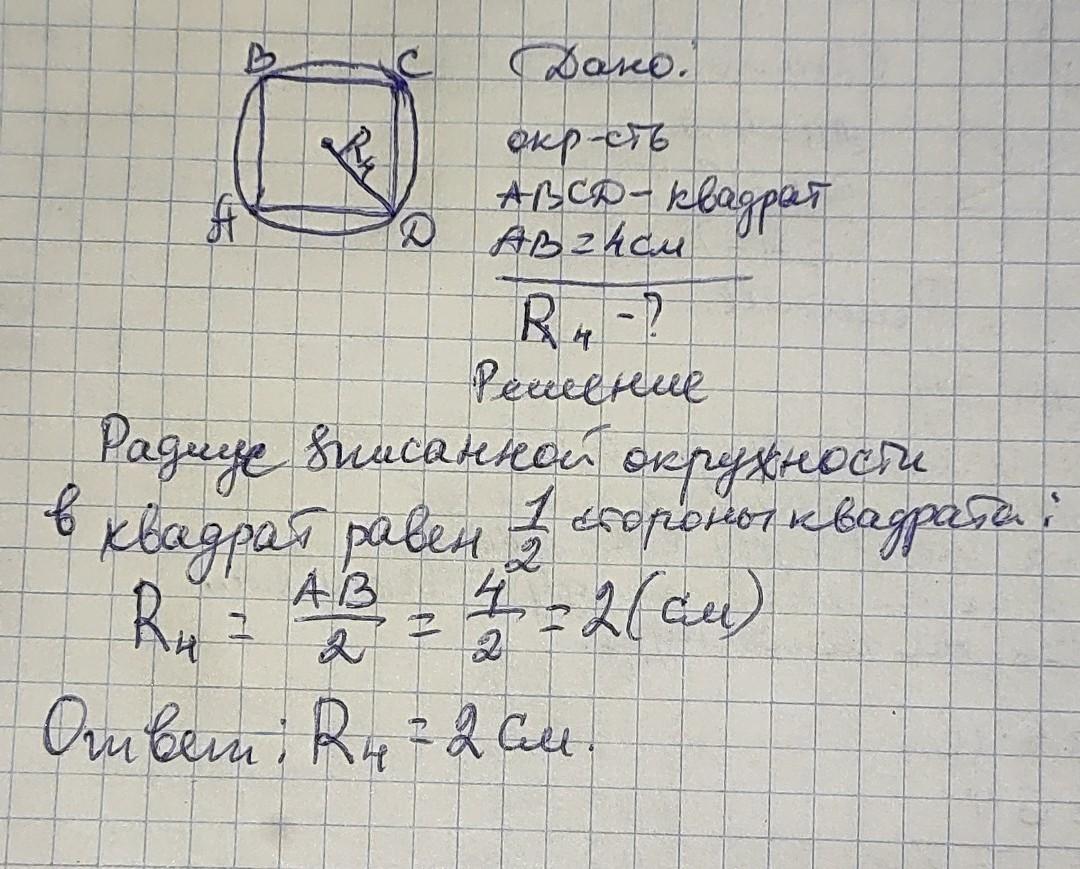 B C
R₄
A D
Дано:
окр-сть
ABCD - квадрат
AB = 4 см
R₄ - ?
Решение
Радиус вписанной окружности
в квадрат равен 1/2 стороны квадрата:
R₄ = AB/2 = 4/2 = 2 (см)
Ответ: R₄ = 2 см.